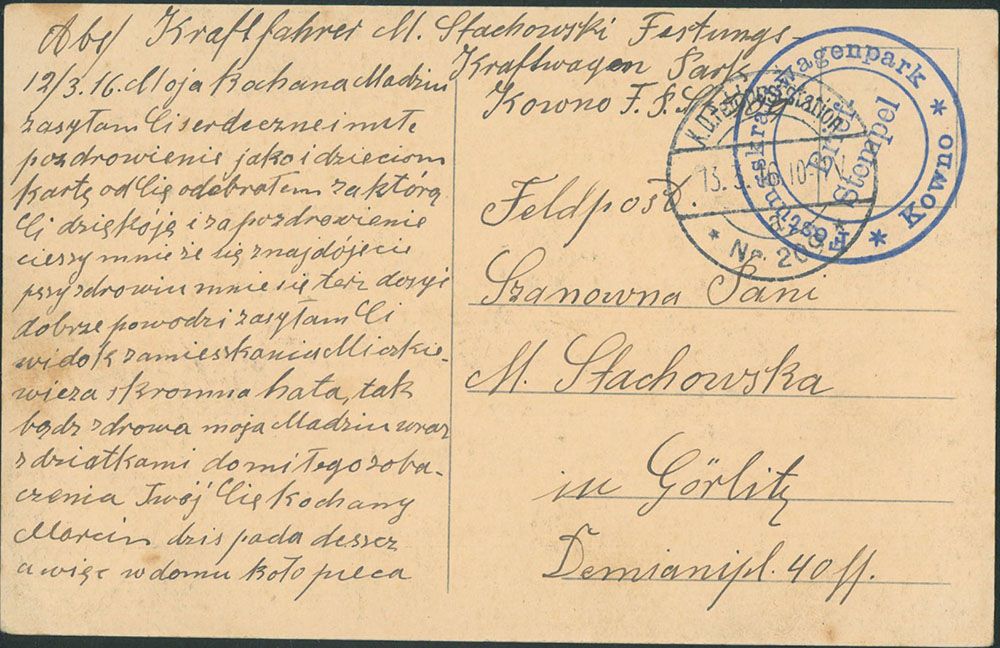 Abs/ Kraftfahrer M. Stachowski Festungs-
Kraftwagen Park
Kowno F. P. St.
12/3.16. Moja Kochana Madziu
zasyłam Ci serdeczne i miłe
pozdrowienie jako i dzieciom
kartę od Cię odebrałem za którą
Ci dziękóję i za pozdrowienie
cieszy mnie że się znajdójecie
przy zdrowiu mnie się terz dosyć
dobrze powodzi zasyłam Ci
widok zamieskania Mickie-
wicza skromna hata, tak
bądz zdrowa moja Madziu wraz
z dziatkami do miłego zoba-
czenia Twój Cię Kochany
Marcin dzis pada desscz
a więc w domu koło pieca
Feldpost.
Szanowna Pani
M. Stachowska
in Görlitz
Demianipl. 40 II.
K.D. Feldpoststation
13. 3. 16. 10-
* No 209 *
Festungskraftwagenpark * Kowno *
Brief
Stempel